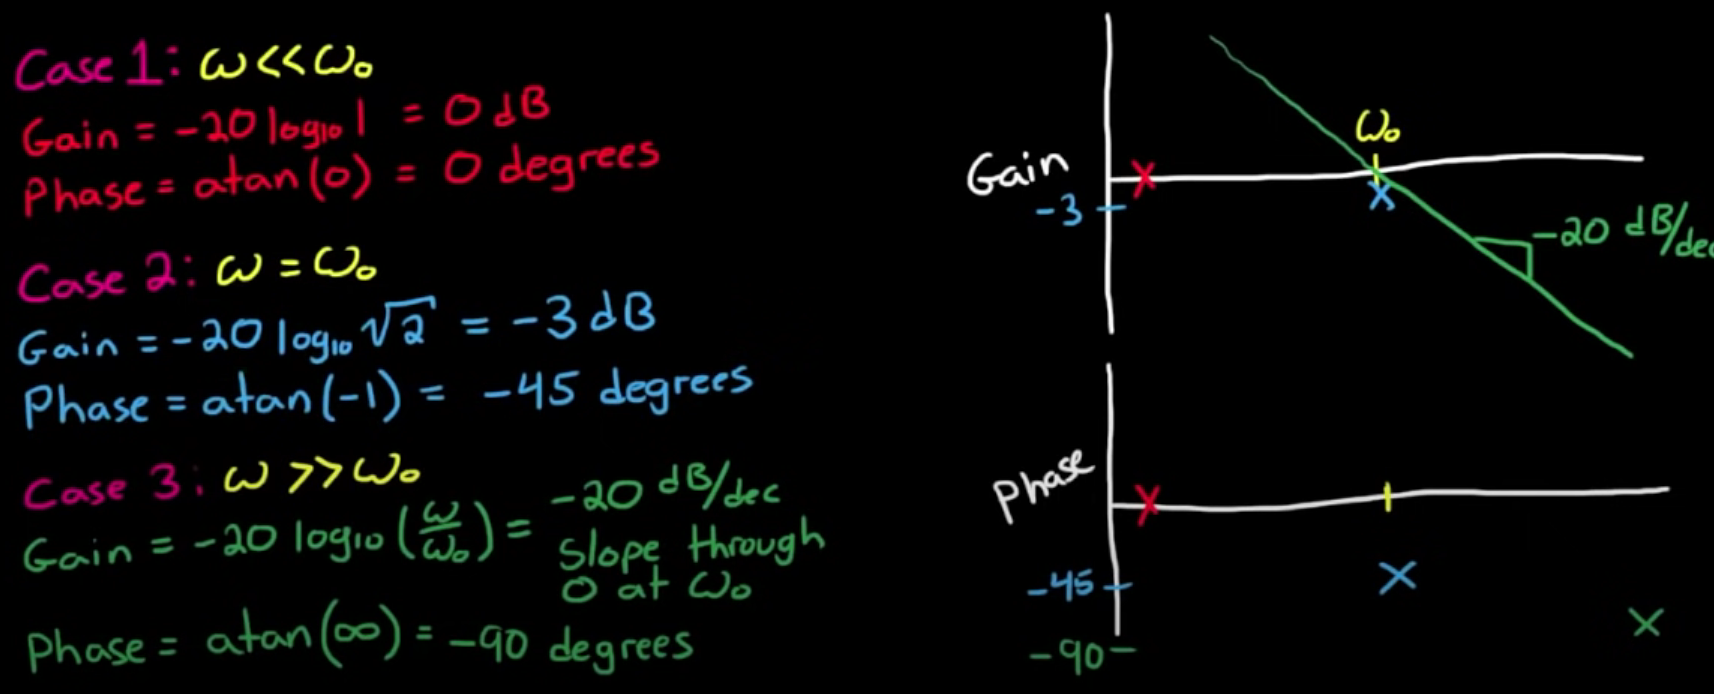 Case 1: ω<<ω₀
Gain = -20 log₁₀1 = 0 dB
Phase = atan(0) = 0 degrees
Case 2: ω = ω₀
Gain = -20 log₁₀ √2 = -3 dB
Phase = atan(-1) = -45 degrees
Case 3: ω >> ω₀
Gain = -20 log₁₀ (ω/ω₀) = -20 dB/dec
Slope through
0 at ω₀
Phase = atan(∞) = -90 degrees
ω₀
Gain
-3
-20 dB/dec
Phase
-45
-90